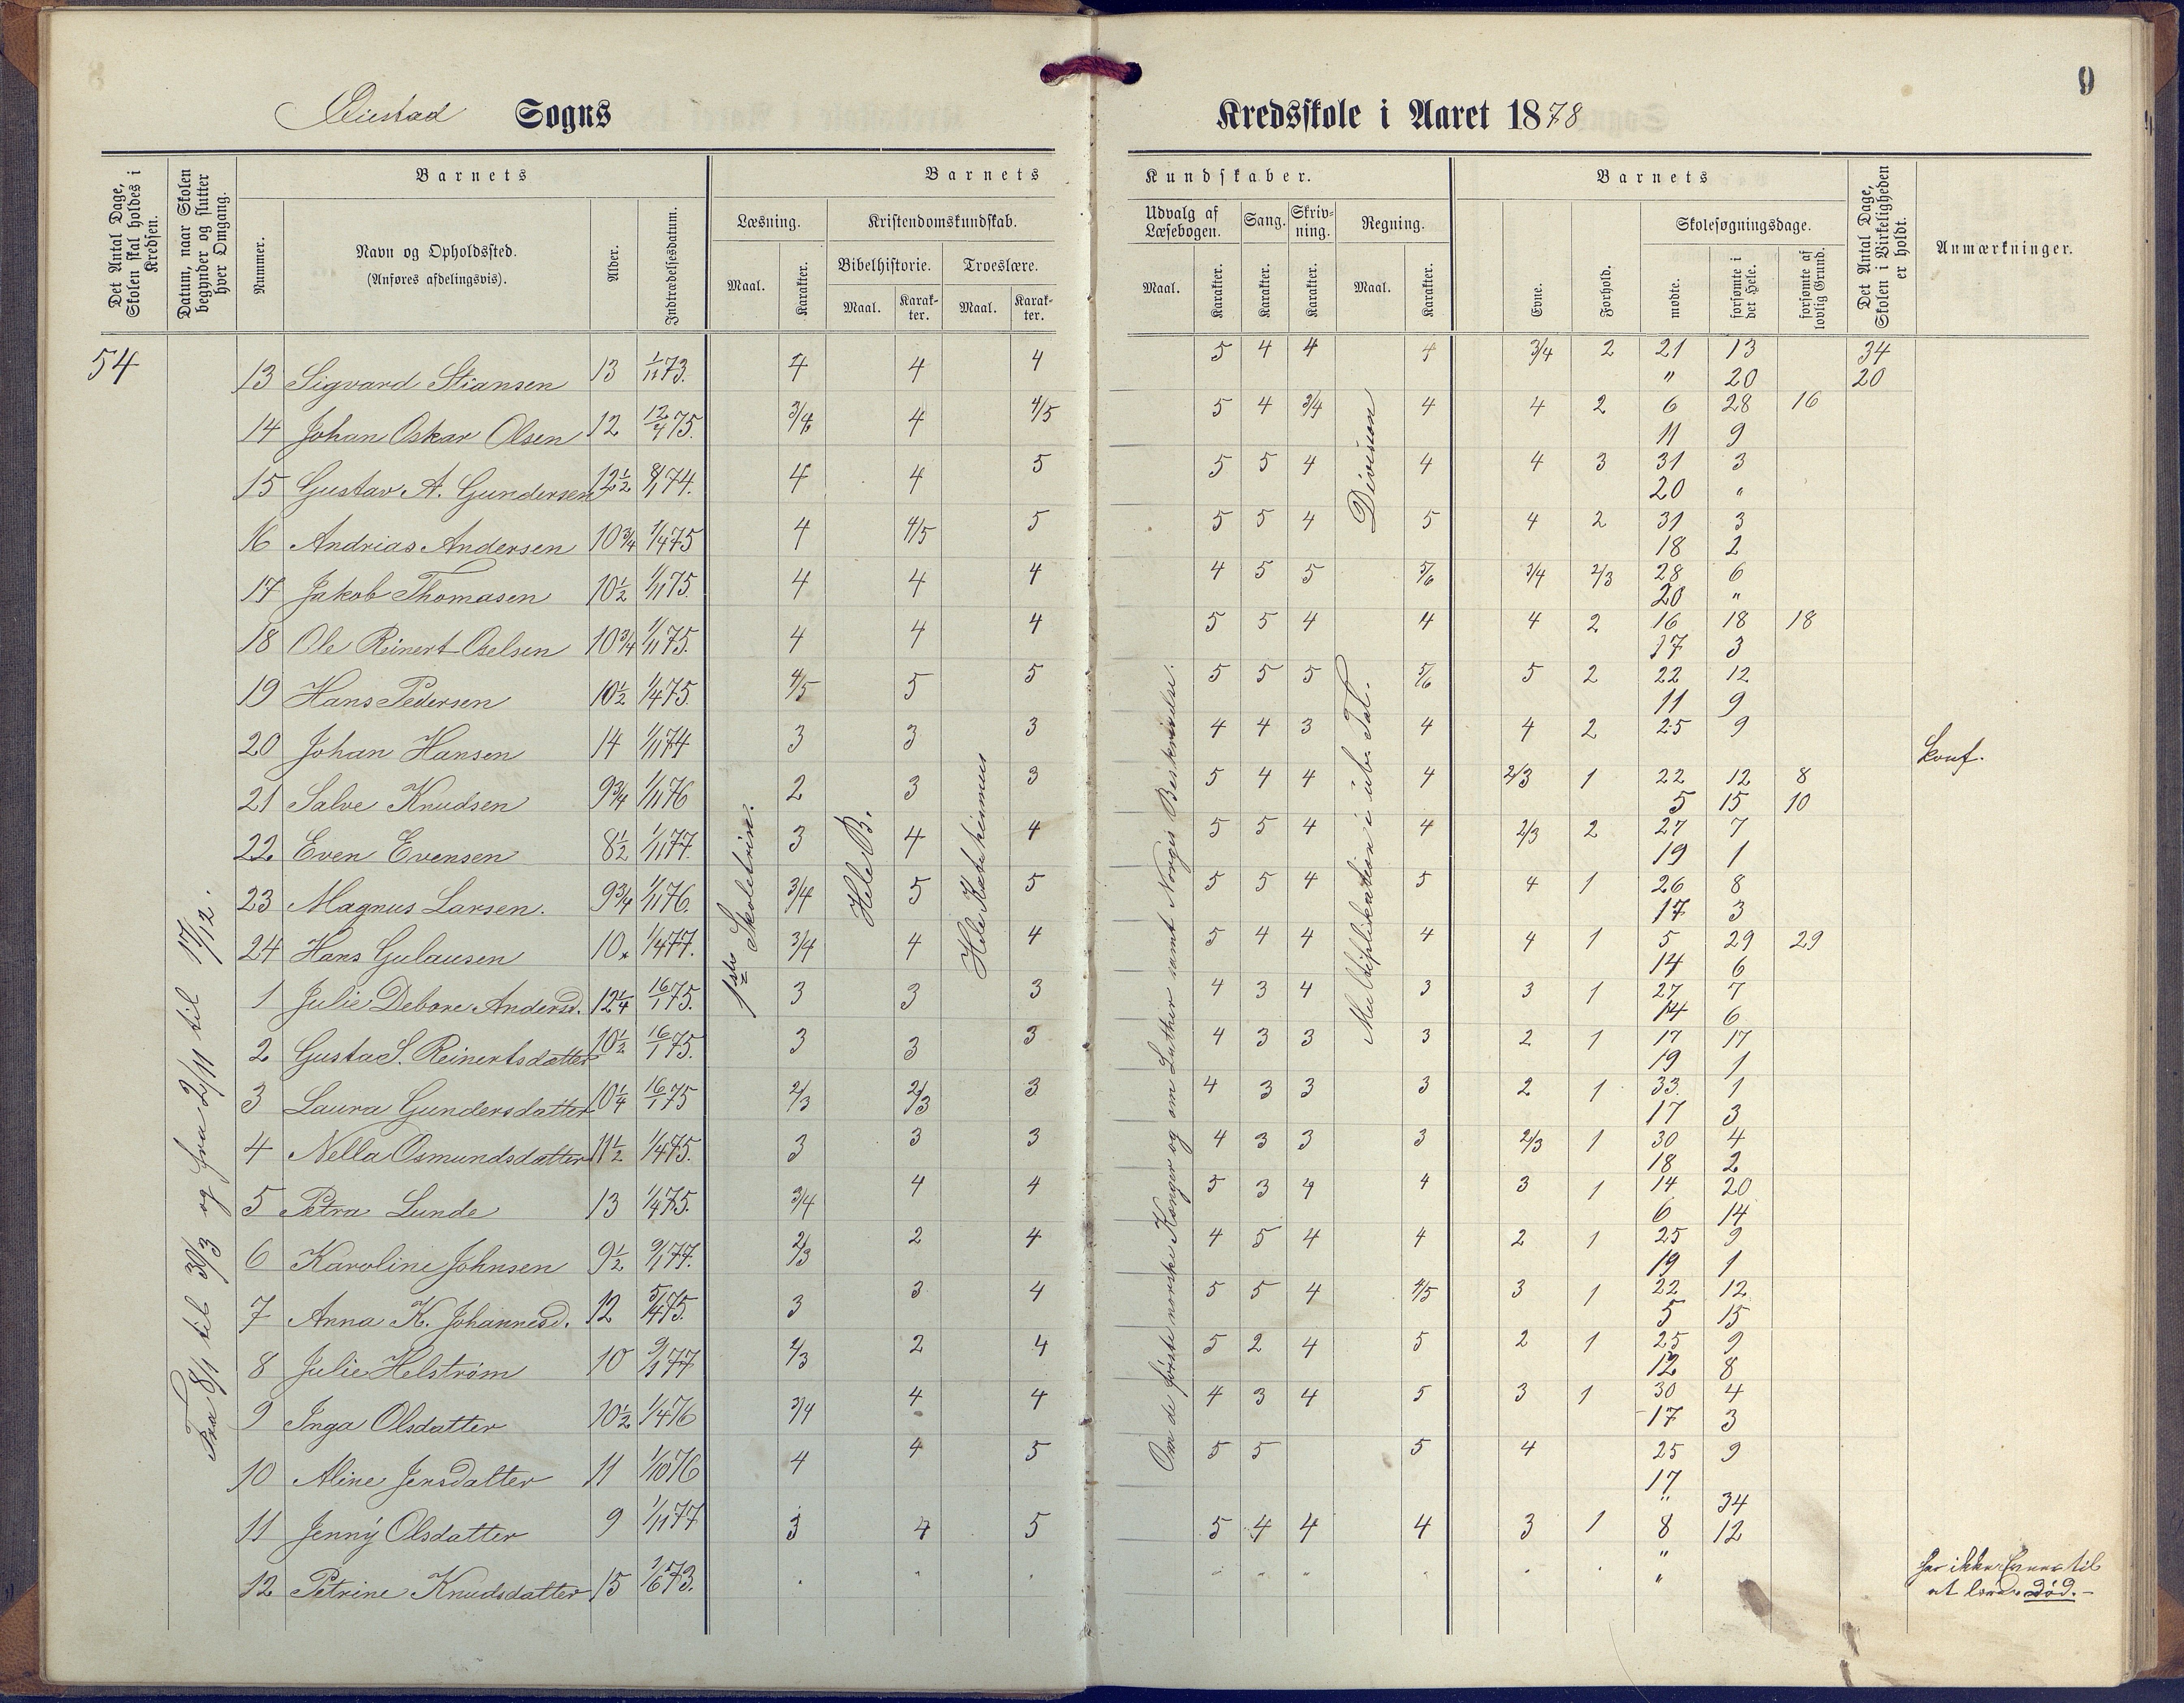 8
9
Øiestad Sogns
Kredsskole i Aaret 1878
Det Antal Dage, Skolen skal holdes i Kredsen.
Datum, naar Skolen begynder og slutter hver Omgang.
Barnets
Nummer.
Navn og Opholdssted.
(Anføres afdelingsvis).
Alder.
Indtrædelsesdatum.
Barnets
Læsning.
Kristendomskundskab.
Bibelhistorie.
Troeslære.
Maal.
Karakter.
Maal.
Karakter.
Maal.
Karakter.
Kundskaber.
Udvalg af Læsebogen.
Sang.
Skrivning.
Regning.
Maal.
Karakter.
Karakter.
Karakter.
Maal.
Karakter.
Barnets
Evne.
Forhold.
Skolesøgningsdage.
mødte.
forsømte i det Hele.
forsømte af lovlig Grund.
Det Antal Dage, Skolen i Virkeligheden er holdt.
Anmærkninger.
54
Fra 8/1 til 30/3 og fra 2/11 til 17/12.
1ste Skoletrin.
Hele B.
Hele Katekismus
Om de første norske Konger og om Luther samt Norges Beskrivelse.
Division
Multiplikation i ube. Tal.
13 Sigvard Stiansen 13 1/11 73. 4 4 4 5 4 4 4 3/4 2 21 13 34
" 20 20
14 Johan Oskar Olsen 12 12/4 75. 3/4 4 4/5 5 4 3/4 4 4 2 6 28 16
11 9
15 Gustav A. Gundersen 12 1/2 8/1 74. 4 4 5 5 5 4 4 4 3 31 3
20 "
16 Andrias Andersen 10 3/4 1/4 75 4 4/5 5 5 5 4 5 4 2 31 3
18 2
17 Jakob Thomasen 10 1/2 1/11 75. 4 4 4 4 5 5 5/6 3/4 2/3 28 6
20 "
18 Ole Reinert Oselsen 10 3/4 1/11 75. 4 4 4 5 5 4 4 4 2 16 18 18
17 3
19 Hans Pedersen 10 1/2 1/4 75. 4/5 5 5 5 5 5 5/6 5 2 22 12
11 9
20 Johan Hansen 14 1/11 74 3 3 3 4 4 3 4 4 2 25 9 Konf.
21 Salve Knudsen 9 3/4 1/11 76 2 3 3 5 4 4 4 2/3 1 22 12 8
5 15 10
22 Even Evensen 8 1/2 1/11 77. 3 4 4 5 5 4 4 2/3 2 27 7
19 1
23 Magnus Larsen. 9 3/4 1/11 76. 3/4 5 5 5 5 4 5 4 1 26 8
17 3
24 Hans Gulausen 10. 1/4 77. 3/4 4 4 5 4 4 4 4 1 5 29 29
14 6
1 Julie Debore Andersd. 12 1/4 16/1 75. 3 3 3 4 3 4 3 3 1 27 7
14 6
2 Gusta S. Reinertsdatter 10 1/2 16/1 75. 3 3 3 4 3 3 3 2 1 17 17
19 1
3 Laura Gundersdatter 10 1/4 16/1 75 2/3 2/3 3 4 3 3 3 2 1 33 1
17 3
4 Nella Osmundsdatter 11 1/2 1/4 75. 3 3 3 4 3 3 3 2/3 1 30 4
18 2
5 Petra Lunde 13 1/4 75. 3/4 4 4 5 3 4 4 3 1 14 20
6 14
6 Karoline Johnsen 9 1/2 9/1 77. 2/3 2 4 4 5 4 4 2 1 25 9
19 1
7 Anna K. Johannesd. 12 5/4 75. 3 3 4 5 5 4 4/5 3 1 22 12
5 15
8 Julie Helstrøm 10 9/1 77 2/3 2 4 5 2 4 5 2 1 25 9
12 8
9 Inga Olsdatter 10 1/2 1/4 76 3/4 4 4 4 3 4 5 3 1 30 4
17 3
10 Aline Jensdatter 11 1/10 76 4 4 5 5 5 5 4 25 9
17
11 Jenny Olsdatter 9 1/11 77 3 4 5 5 4 4 4 3 1 " 34
8 12
12 Petrine Knudsdatter 15 1/6 73. "
" har ikke Evner til
at lære. død. -